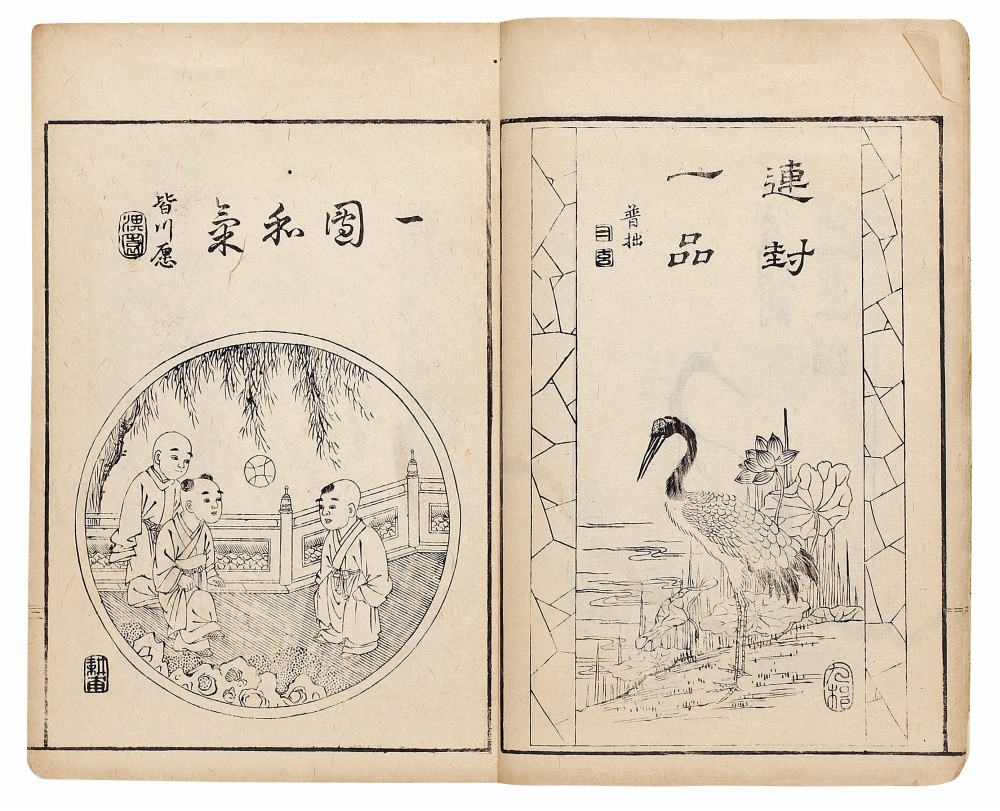 連封
一品
普拙
一團和氣
皆川愿
淇園